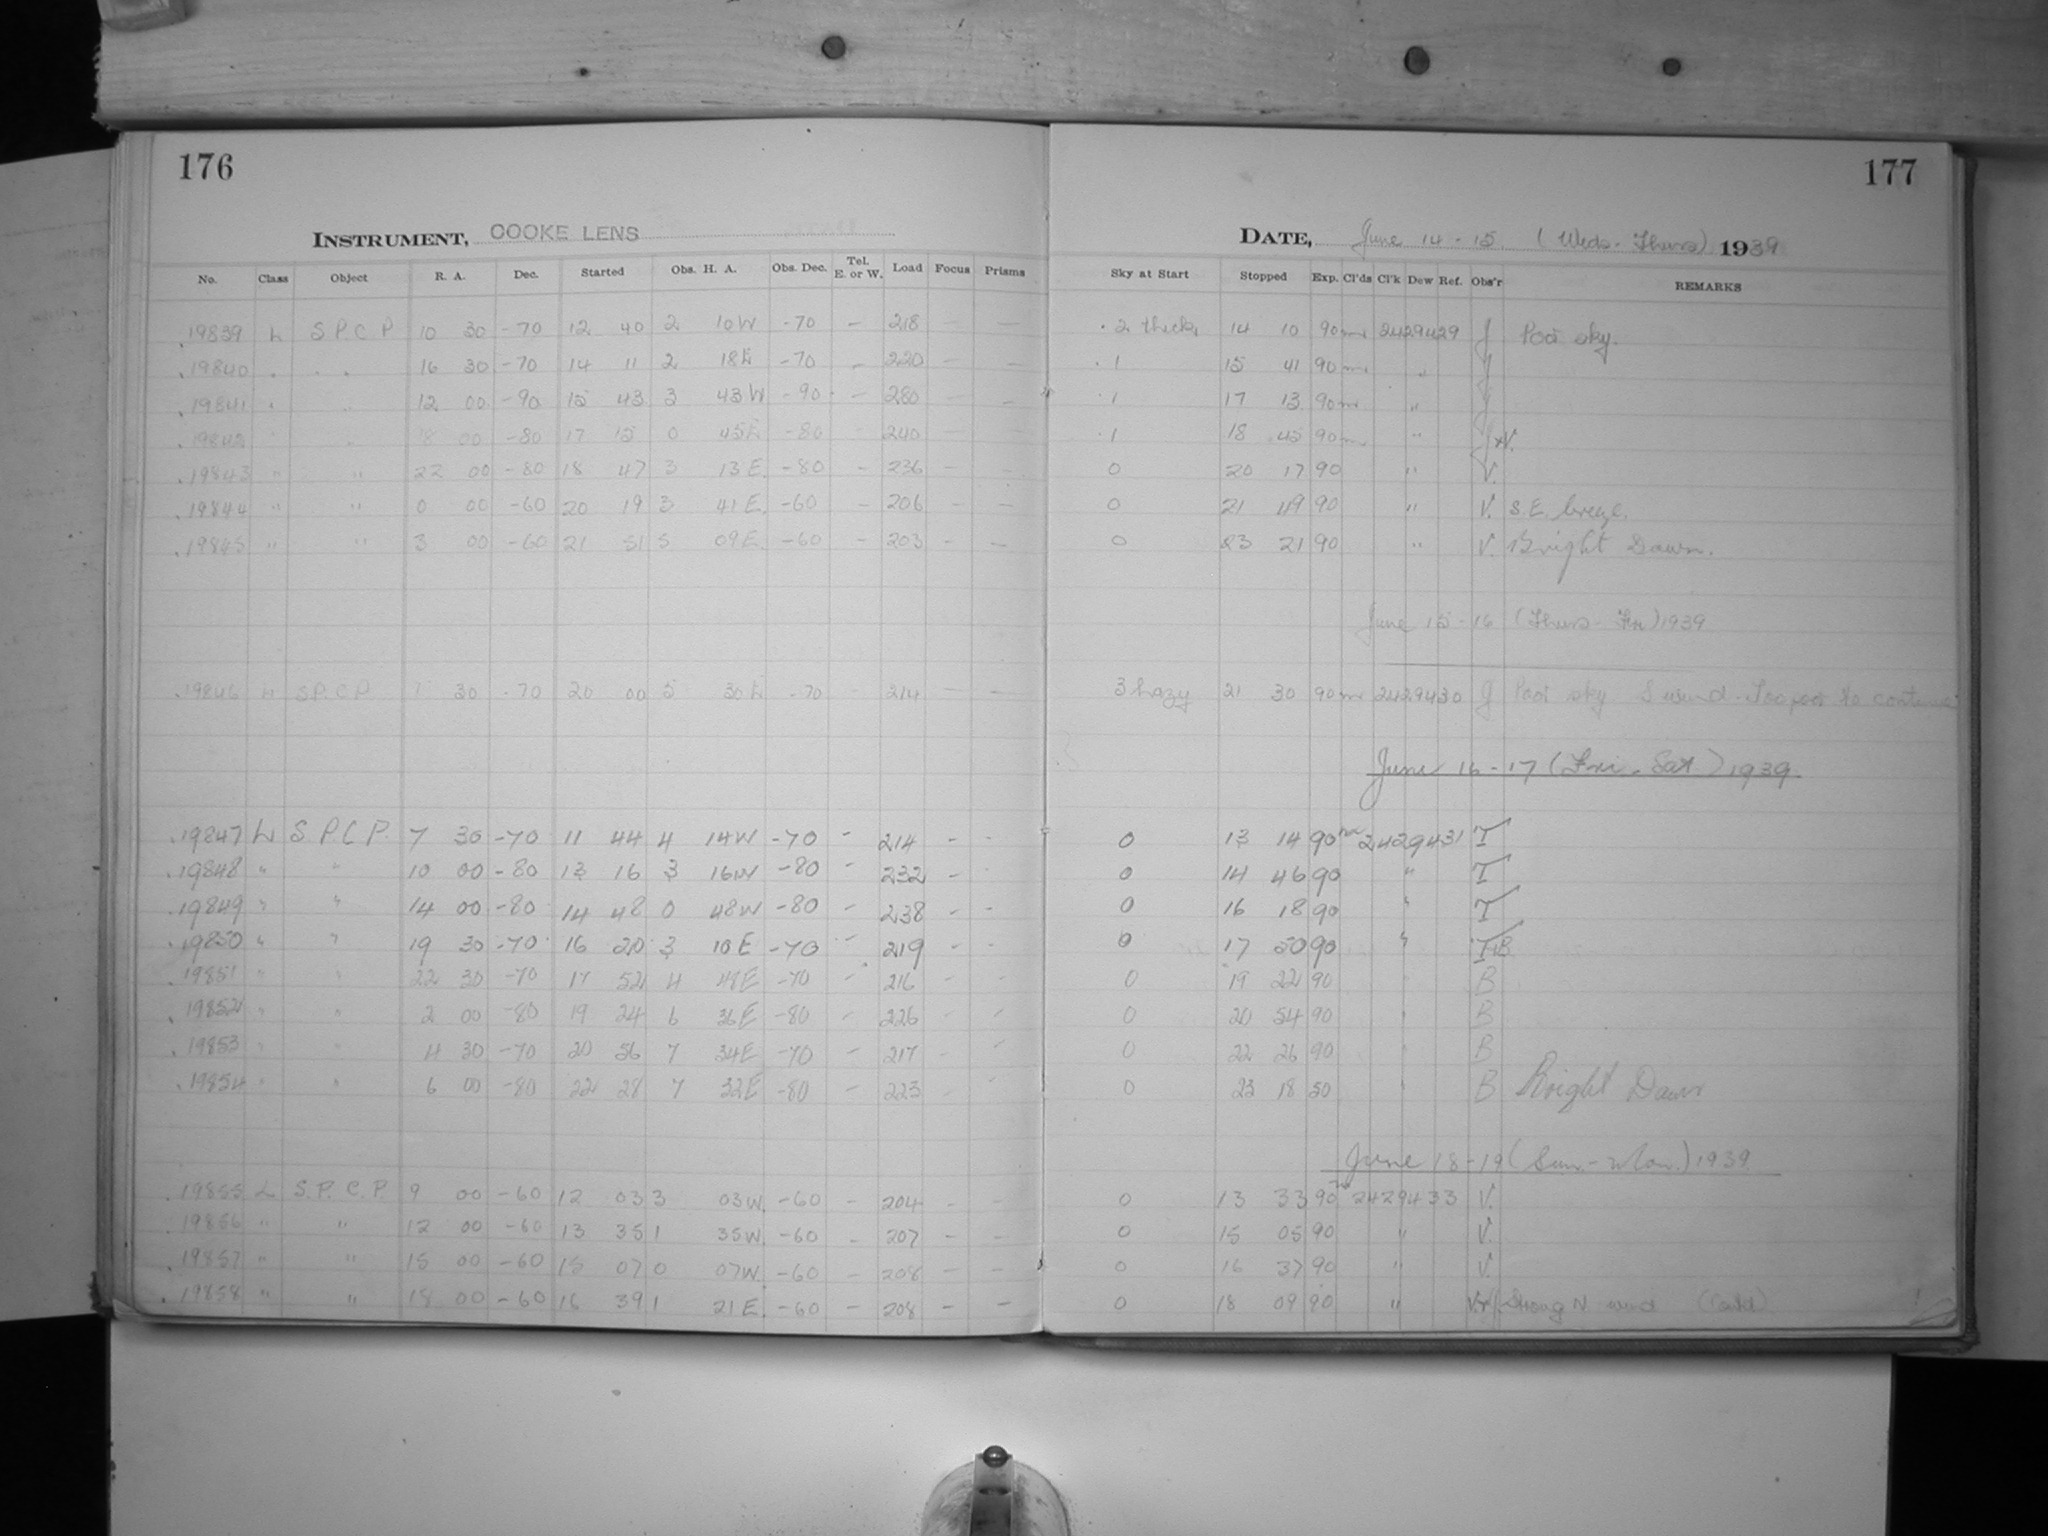 176
177
INSTRUMENT, COOKE LENS
DATE, June 14-15 (Weds-Thurs) 1939
No. Class Object R. A. Dec. Started Obs. H. A. Obs. Dec. Tel. E. or W. Load Focus Prisms Sky at Start Stopped Exp. Cl'ds Cl'k Dew Ref. Obs'r REMARKS
19839 L S.P.C.P 10 30 -70 12 40 2 10W -70 - 218 - - 2 thick 14 10 90m 2429429 J Poor sky.
19840 " " 16 30 -70 14 11 2 18E -70 - 220 - - 1 15 41 90m " J
19841 " " 12 00 -90 15 43 3 43W -90 - 280 - - 1 17 13 90m " J
19842 " " 18 00 -80 17 15 0 45E -80 - 240 - - 1 18 45 90m " J+V.
19843 " " 22 00 -80 18 47 3 13E -80 - 236 - - 0 20 17 90 " V.
19844 " " 0 00 -60 20 19 3 41E. -60 - 206 - - 0 21 49 90 " V. S.E. breeze.
19845 " " 3 00 -60 21 51 5 09E. -60 - 203 - - 0 23 21 90 " V. Bright Dawn.
June 15-16 (Thurs-Fri) 1939
19846 L S.P.C.P 1 30 -70 20 00 5 30E -70 - 214 - - 3 hazy 21 30 90m 2429430 J Poor sky S wind - Too poor to continue
June 16-17 (Fri.-Sat.) 1939.
19847 L S.P.C.P. 7 30 -70 11 44 4 14W -70 - 214 - - 0 13 14 90m 2429431 T
19848 " " 10 00 -80 13 16 3 16W -80 - 232 - - 0 14 46 90 " T
19849 " " 14 00 -80 14 48 0 48W -80 - 238 - - 0 16 18 90 " T
19850 " " 19 30 -70 16 20 3 10E -70 - 219 - - 0 17 50 90 " TB
19851 " " 22 30 -70 17 52 4 48E -70 - 216 - - 0 19 22 90 " B
19852 " " 2 00 -80 19 24 6 36E -80 - 226 - - 0 20 54 90 " B
19853 " " 4 30 -70 20 56 7 34E -70 - 217 - - 0 22 26 90 " B
19854 " " 6 00 -80 22 28 7 32E -80 - 223 - 0 23 18 50 " B Bright Dawn
June 18-19 (Sun.-Mon.) 1939
19855 L S.P.C.P 9 00 -60 12 03 3 03W. -60 - 204 - - 0 13 33 90m 2429433 V.
19856 " " 12 00 -60 13 35 1 35W. -60 - 207 - - 0 15 05 90 " V.
19857 " " 15 00 -60 15 07 0 07W. -60 - 208 - - 0 16 37 90 " V.
19858 " " 18 00 -60 16 39 1 21E. -60 - 208 - - 0 18 09 90 " V+J Strong N. wind (Contd)